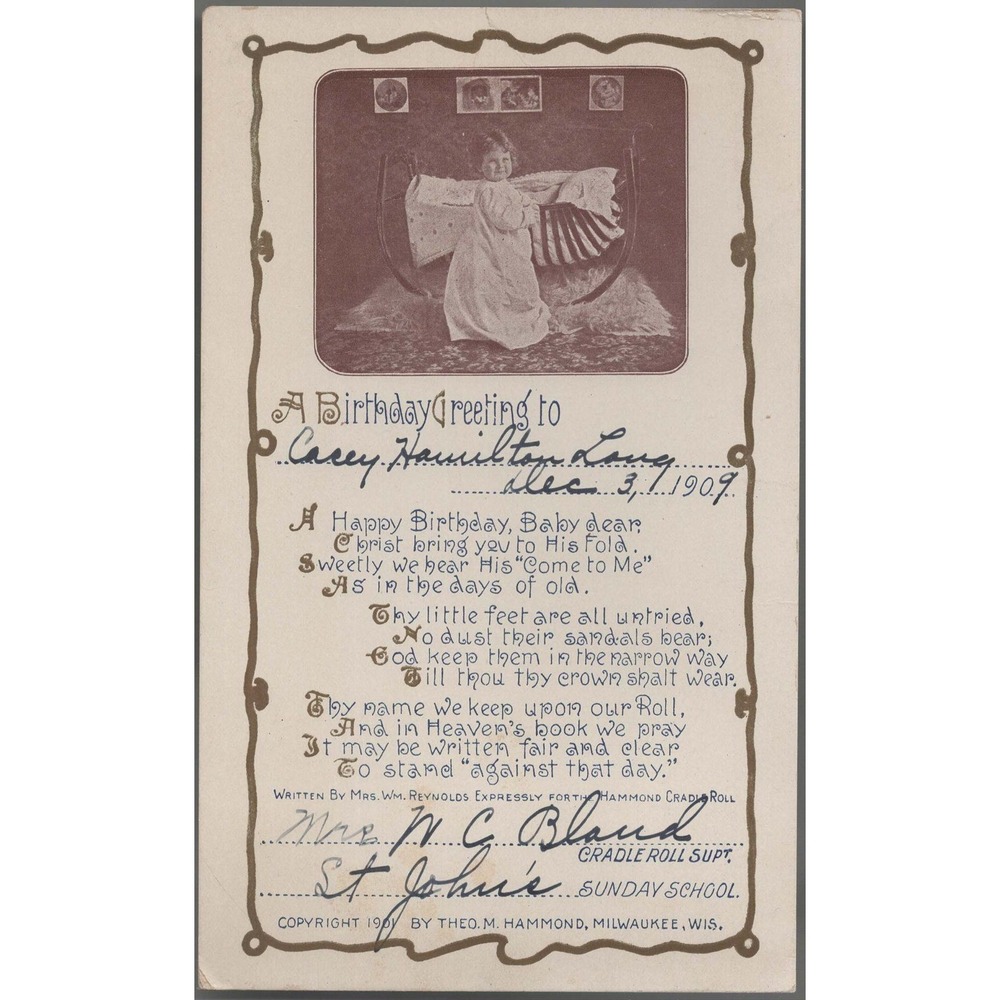 A Birthday Greeting to
Casey Hamilton Long
Dec 3, 1909.
A Happy Birthday, Baby dear,
Christ bring you to His Fold.
Sweetly we hear His "Come to Me"
As in the days of old.
Thy little feet are all untried,
No dust their sandals bear;
God keep them in the narrow way
Till thou thy crown shalt wear.
Thy name we keep upon our Roll,
And in Heaven's book we pray
It may be written fair and clear
To stand "against that day."
WRITTEN BY MRS. WM. REYNOLDS EXPRESSLY FOR THE HAMMOND CRADLE ROLL
Mrs W C Bland
CRADLE ROLL SUPT.
St John's SUNDAY SCHOOL.
COPYRIGHT 1901 BY THEO. M. HAMMOND, MILWAUKEE, WIS.